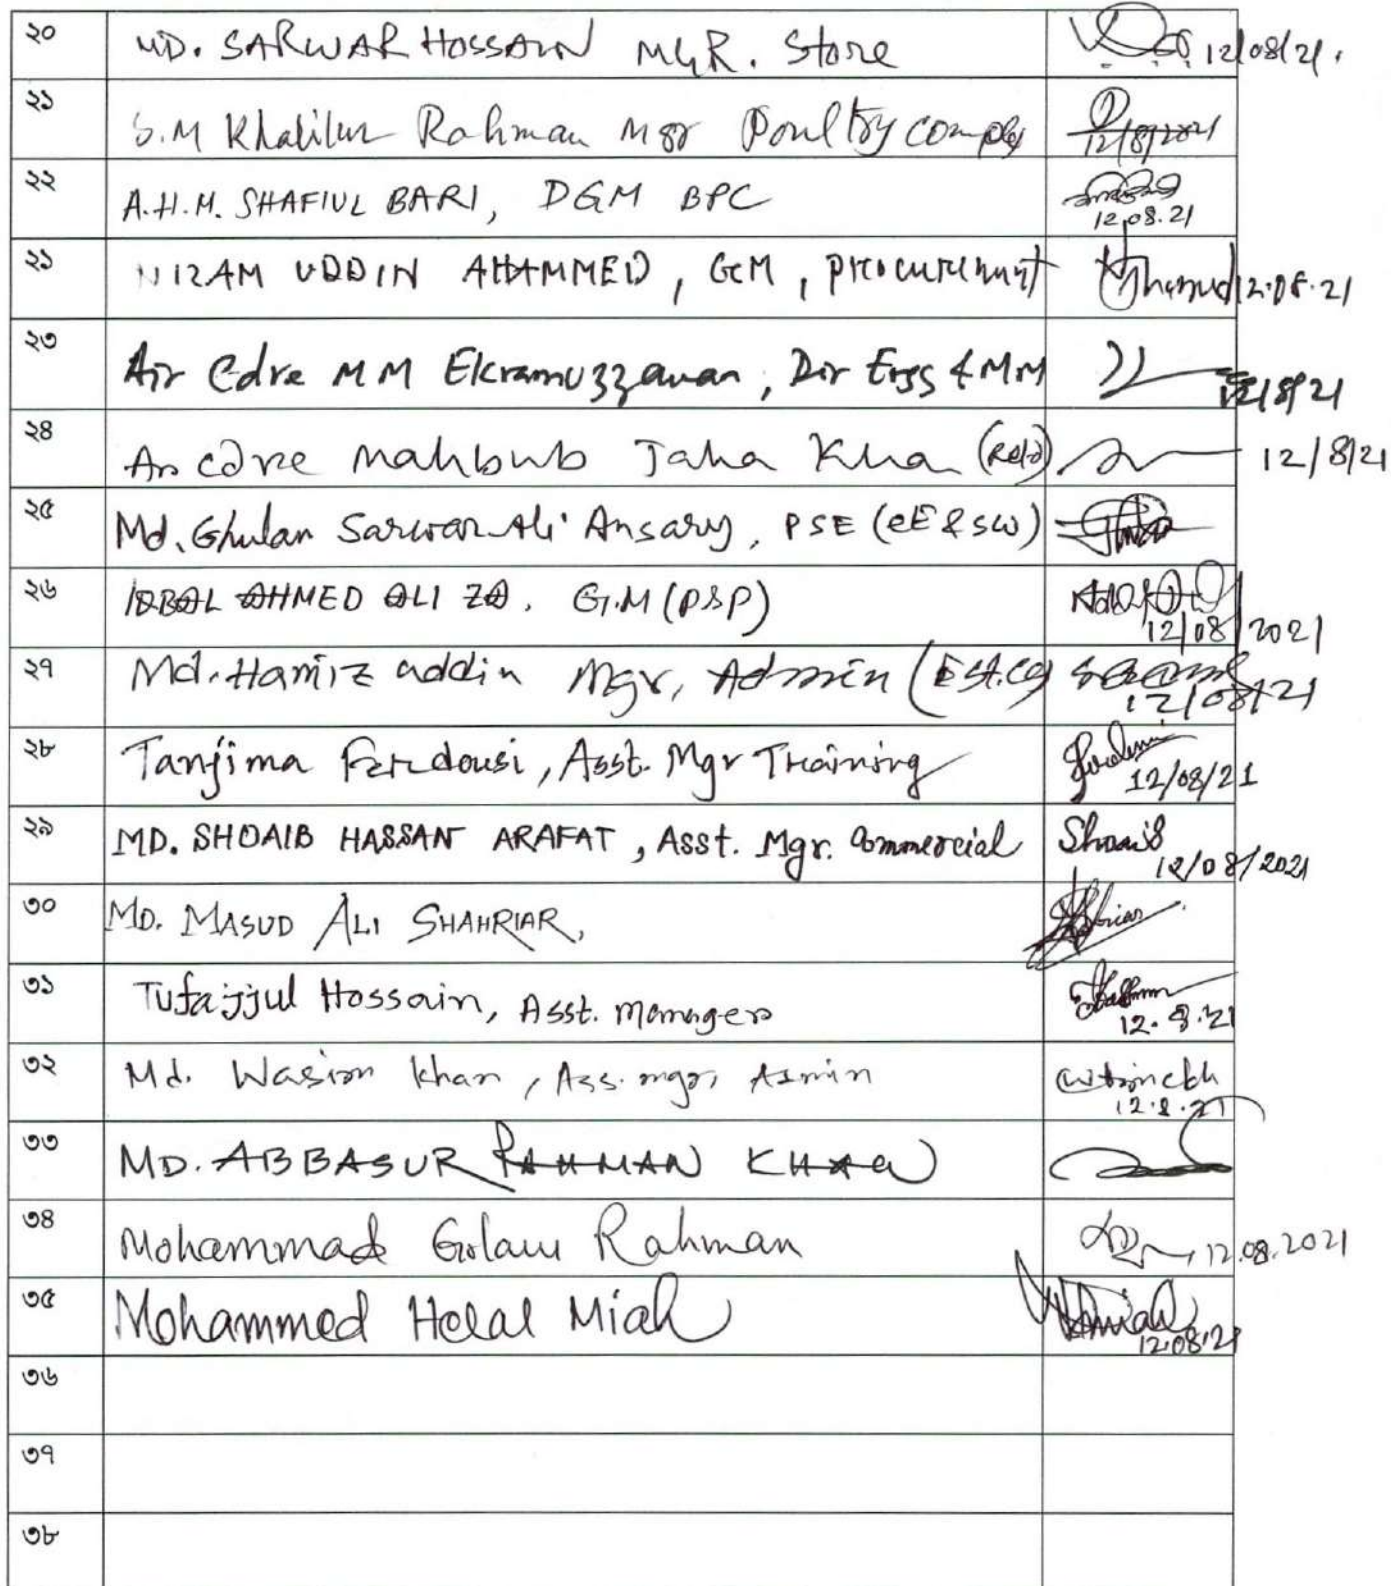 ২০ MD. SARWAR HOSSAIN MGR. Store 12/08/21.
২১ S.M Khalilur Rahman Mgr Poultry comple 12/8/2021
২২ A.H.M. SHAFIUL BARI, DGM BPC
12.08.21
২১ NIZAM UDDIN AHAMMED, GM, Procurement 12.08.21
২৩ Air Cdre M M Ekramuzzaman, Dir Engg & MM 12/8/21
২৪ Air Cdre Mahbub Jaha Kha (Retd) 12/8/21
২৫ Md. Ghulan Sarwar Ali Ansary, PSE (eE & SW)
২৬ IQBAL AHMED ALI ZA. G.M (PSP)
12/08/2021
২৭ Md. Hamiz uddin Mgr, Admin (Est.
12/08/21
২৮ Tanjima Ferdousi, Asst. Mgr Training
12/08/21
২৯ MD. SHOAIB HASSAN ARAFAT, Asst. Mgr. Commercial Shoaib
12/08/2021
৩০ MD. MASUD ALI SHAHRIAR,
৩১ Tufajjul Hossain, Asst. Manager
12.8.21
৩২ Md. Wasim Khan, Ass. mgr, Asmin
12.8.21
৩৩ MD. ABBASUR RAHMAN KHAN
৩৪ Mohammad Golam Rahman 12.08.2021
৩৫ Mohammed Helal Miah
12.08.21
৩৬
৩৭
৩৮